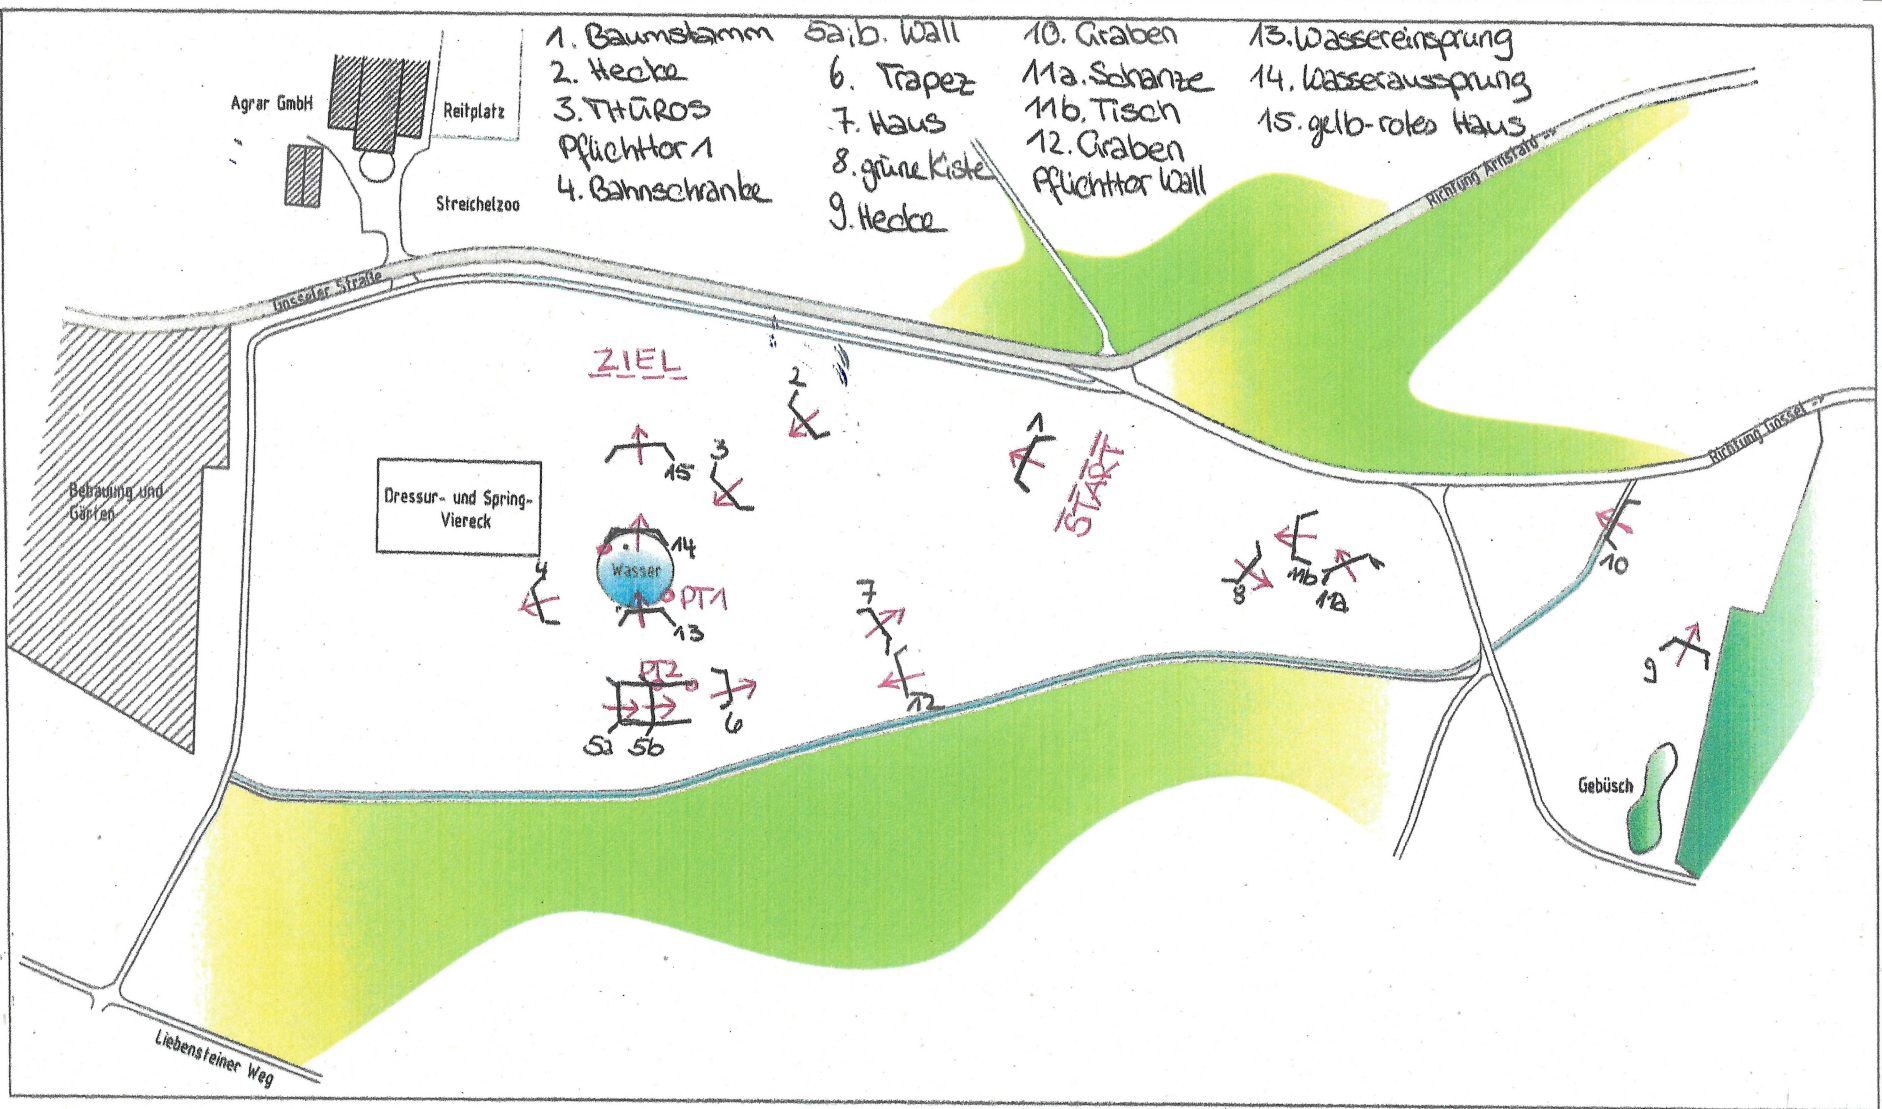 1. Baumstamm
2. Hecke
3. THÜROS
Pflichttor 1
4. Bahnschranke
5a,b. Wall
6. Trapez
7. Haus
8. grüne Kiste
9. Hecke
10. Graben
11a. Schanze
11b. Tisch
12. Graben
Pflichttor Wall
13. Wassereinsprung
14. Wasseraussprung
15. gelb-rotes Haus
Agrar GmbH
Reitplatz
Streichelzoo
Gosseler Straße
Richtung Arnstadt
Richtung Gossel
Bebauung und
Gärten
ZIEL
START
Dressur- und Spring-
Viereck
Wasser
PT1
PT2
1
2
3
15
14
4
13
5a
5b
6
7
12
8
11b
11a
10
9
Gebüsch
Liebensteiner Weg